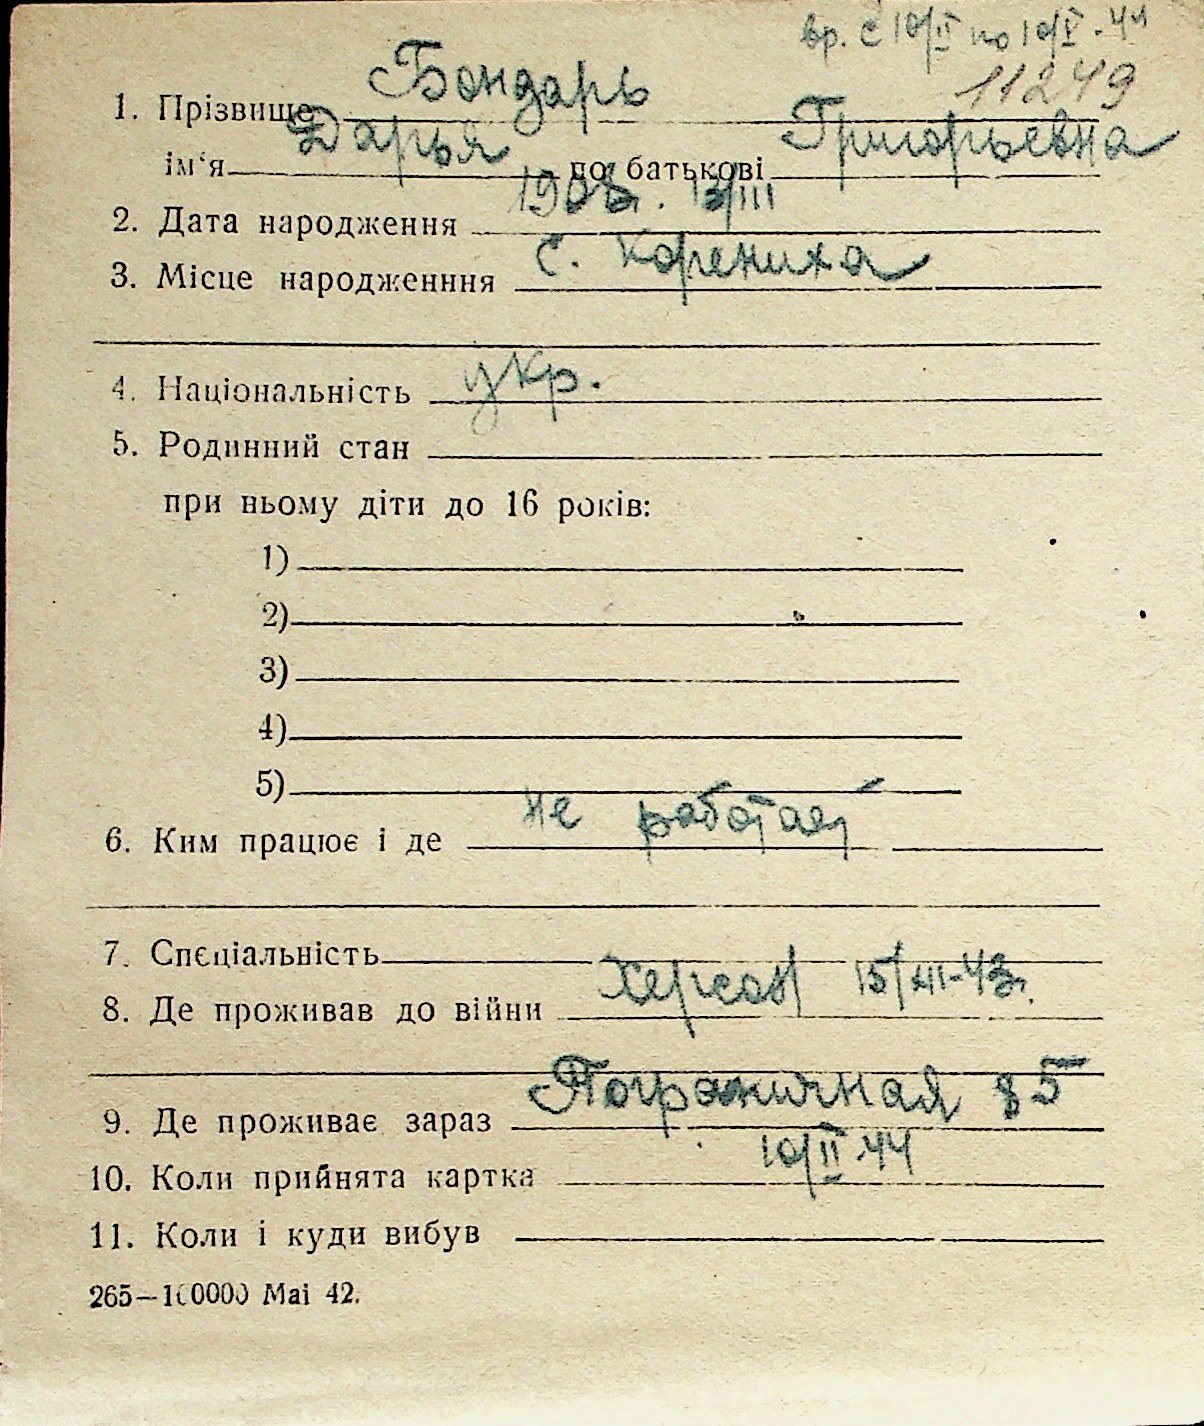 вр. с 10/II по 10/V-44
11249
1. Прізвище Бондарь
ім‘я Дарья по батькові Григорьевна
2. Дата народження 1908г. 13/III
3. Місце народженння с. Корениха
4. Національність укр.
5. Родинний стан
при ньому діти до 16 років:
1)
2)
3)
4)
5)
6. Ким працює і де не работает
7. Спеціальність
8. Де проживав до війни Херсон 15/XII-43г.
9. Де проживає зараз Пограничная 85
10. Коли прийнята картка 10/II-44
11. Коли і куди вибув
265—100000 Mai 42.